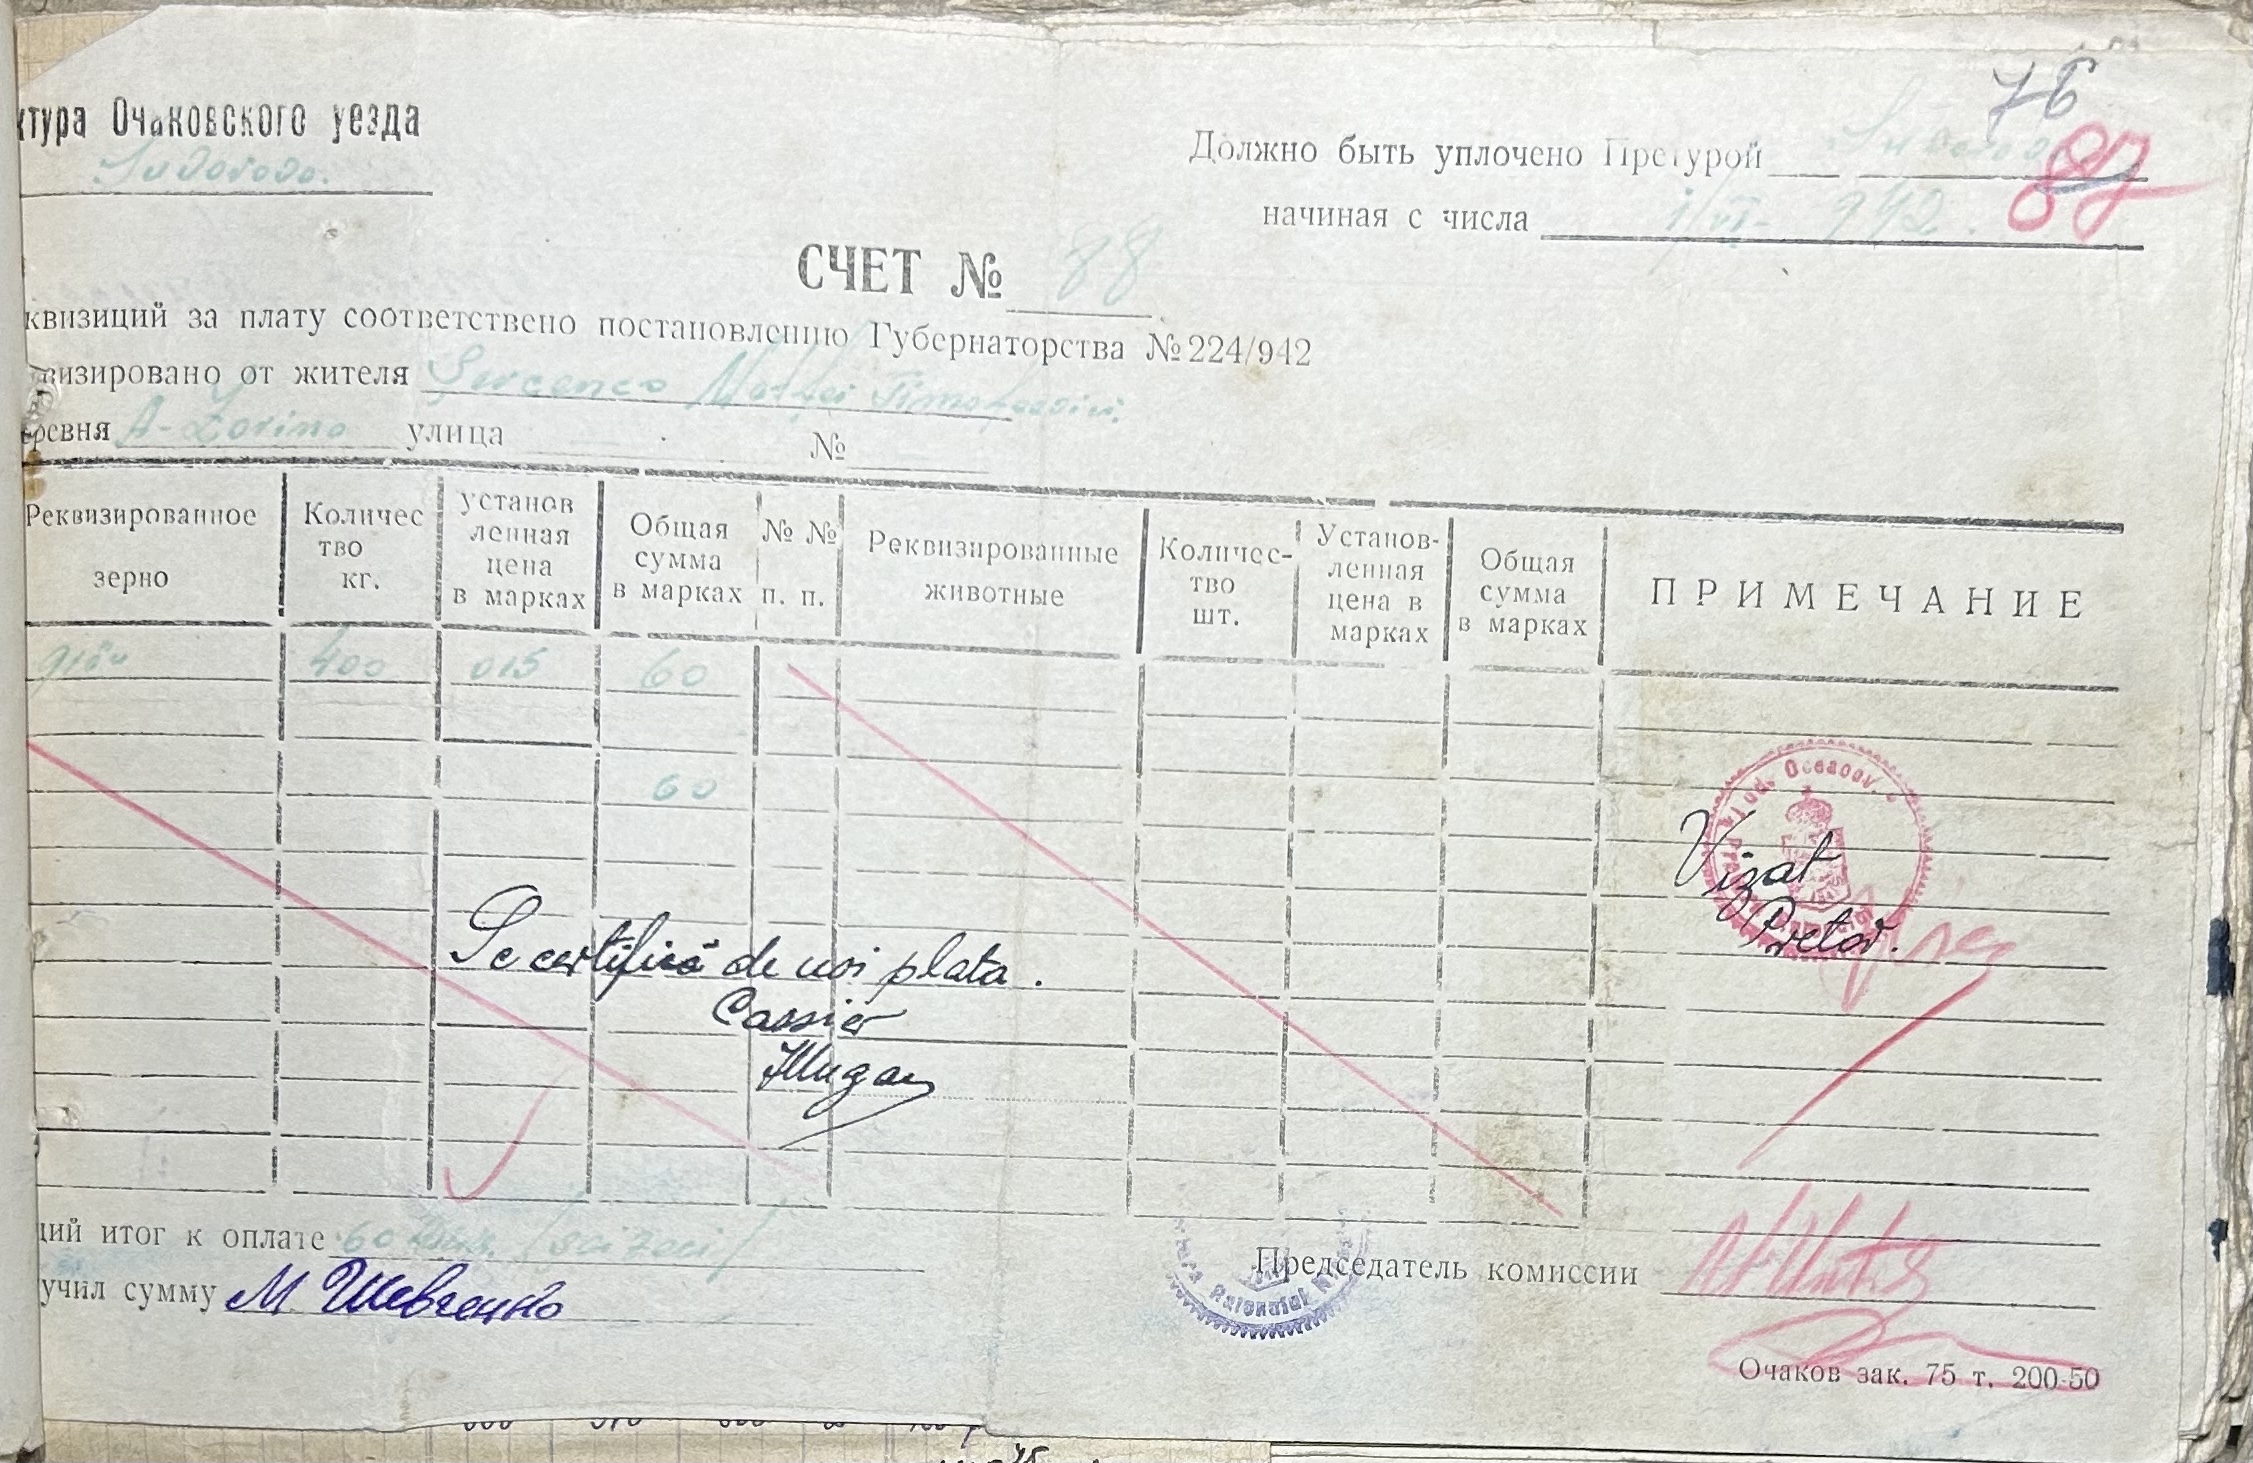 76
87
ктура Очаковского уезда
Должно быть уплочено Претурой
начиная с числа 1/VI - 942.
СЧЕТ № 88
квизиций за плату соответствено постановлению Губернаторства №224/942
визировано от жителя Sevcenco Matfei Timofeevici.
ревня улица №
Реквизированное зерно
Количес тво кг.
установ ленная цена в марках
Общая сумма в марках
№ № п. п.
Реквизированные животные
Количес- тво шт.
Установ- ленная цена в марках
Общая сумма в марках
ПРИМЕЧАНИЕ
grâu 400 015 60
60
Jud. Oceacov.
Vizat
Pretor.
Se certifică de noi plata.
Cassier
щий итог к оплате 60
учил сумму М. Шевченко
Председатель комиссии
Raionului
Очаков зак. 75 т. 200-50